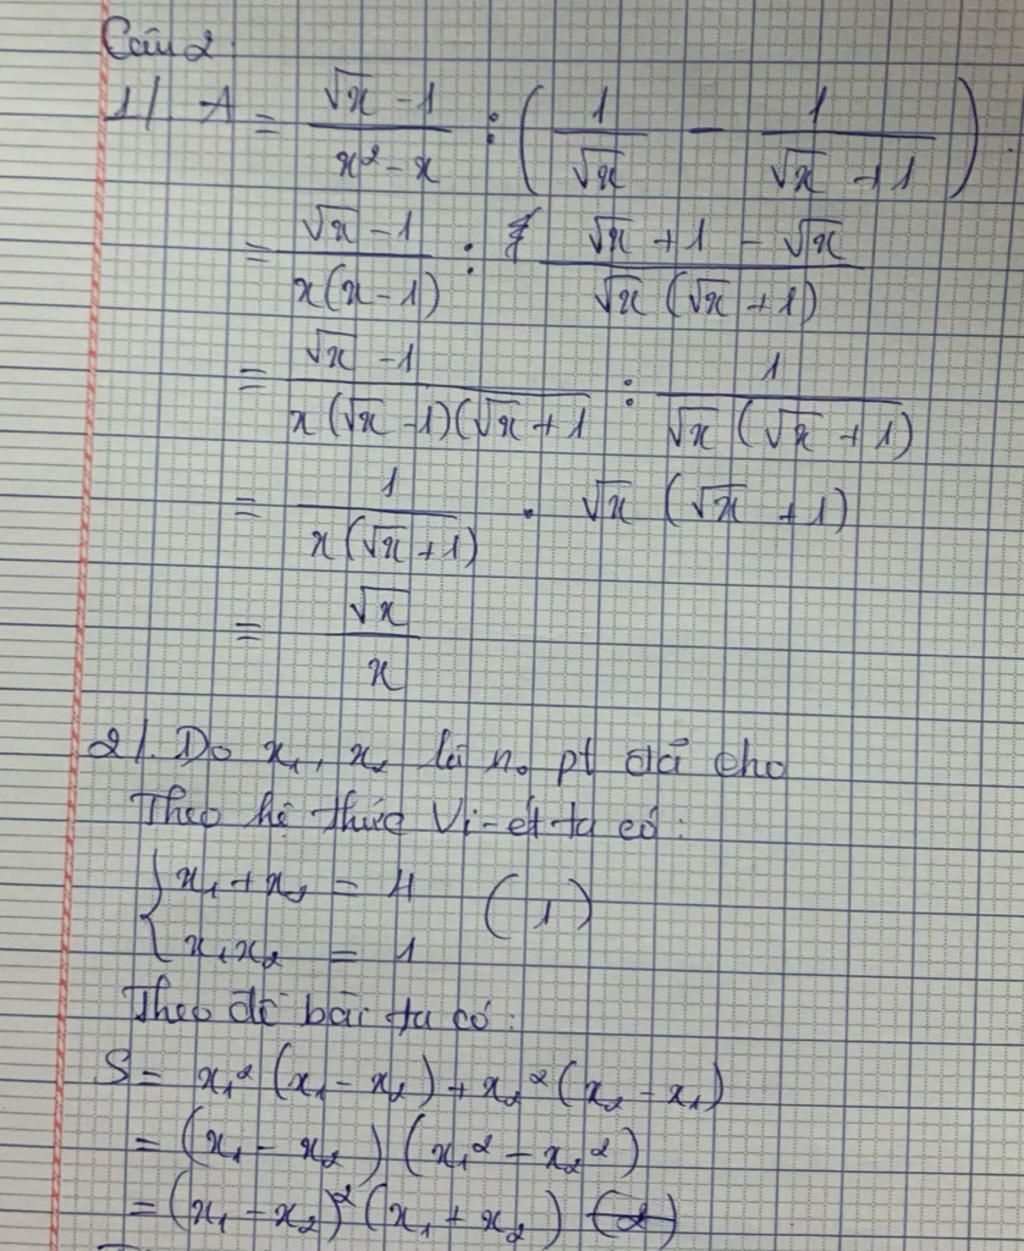 Câu 2
1/ A = (√x - 1)/(x² - x) : (1/√x - 1/(√x + 1))
= (√x - 1)/(x(x - 1)) : (√x + 1 - √x)/(√x (√x + 1))
= (√x - 1)/(x(√x - 1)(√x + 1) : 1/(√x (√x + 1))
= 1/(x(√x + 1)) . √x (√x + 1)
= √x/x
2/. Do x₁, x₂ là n₀ pt đã cho
Theo hệ thức Vi-ét ta có:
{ x₁ + x₂ = 4 (1)
x₁x₂ = 1
Theo đề bài ta có:
S = x₁² (x₁ - x₂) + x₂² (x₂ - x₁)
= (x₁ - x₂) (x₁² - x₂²)
= (x₁ - x₂)² (x₁ + x₂) (2)